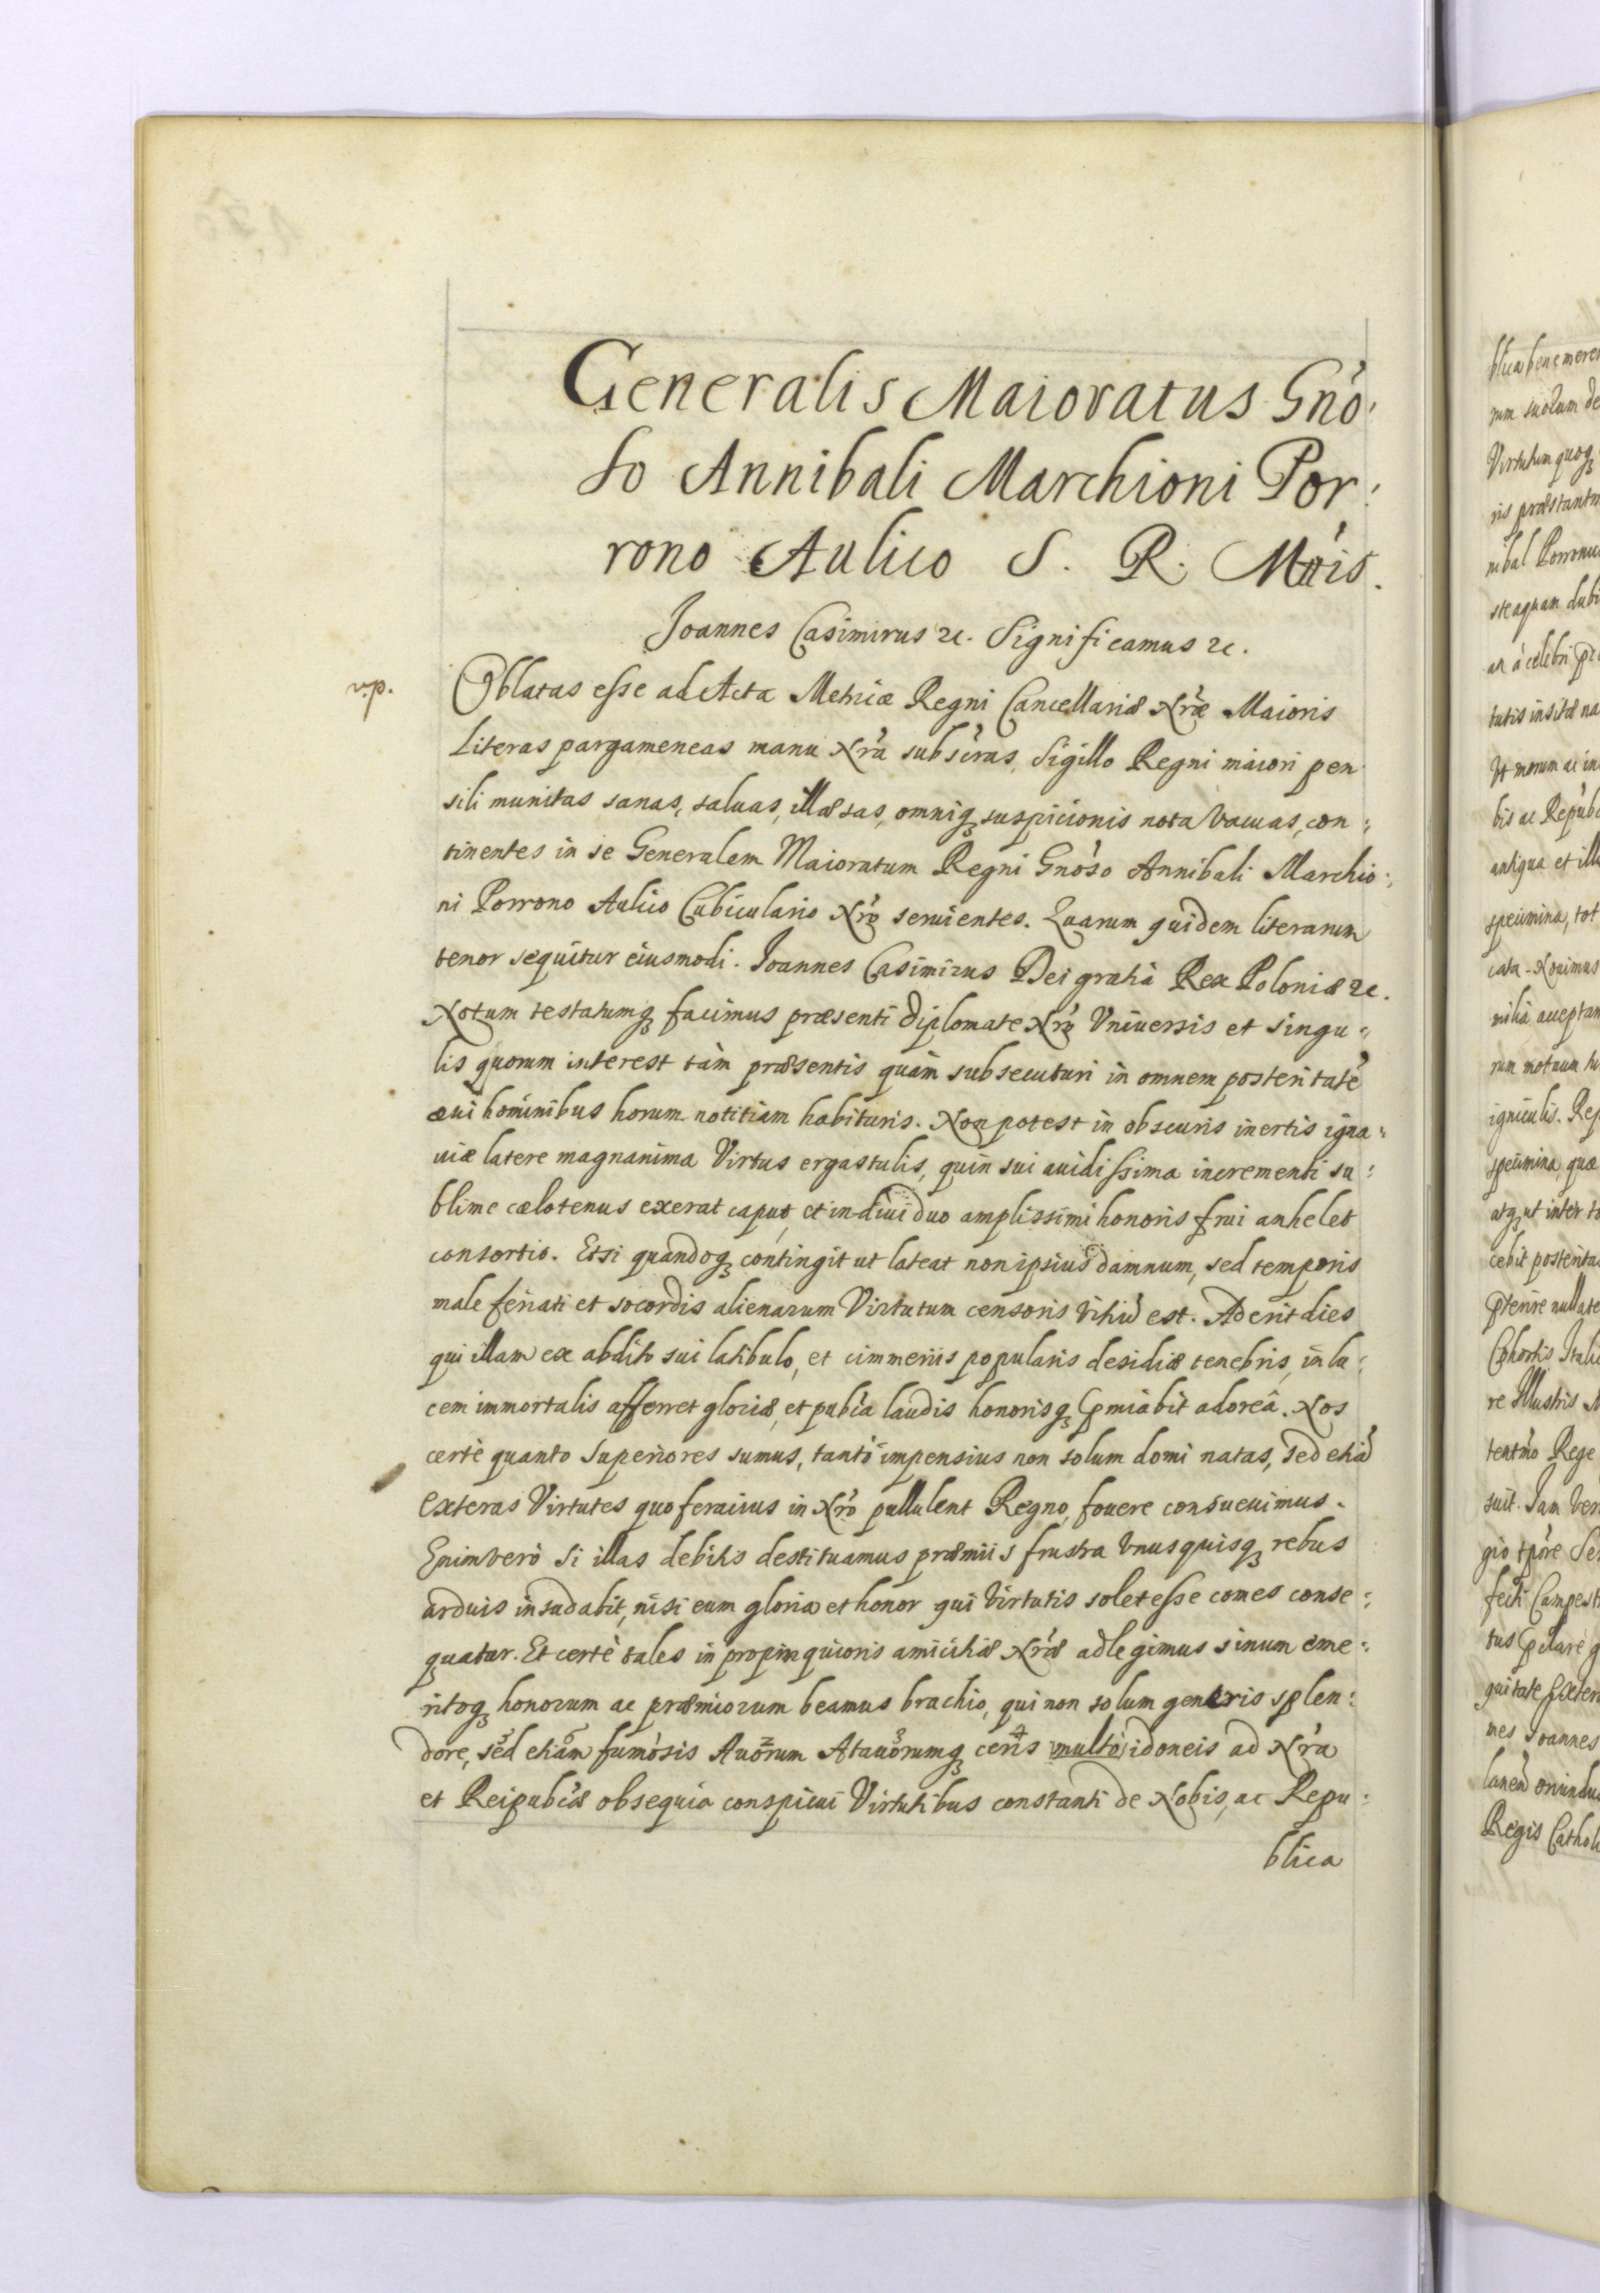 Generalis Maioratus Gnó:
so Annibali Marchioni Por:
rono Aulico S. R. Mtis.
Joannes Casimirus &c. Significamus &c.
v.p.
Oblatas esse ad Acta Metricæ Regni Cancellariæ Nræ Maioris
Literas pargameneas manu Nrà subscras, Sigillo Regni maiori pen
sili munitas sanas, saluas, illæsas, omniq suspicionis nota vacuas, con:
tinentes in se Generalem Maioratum Regni Gnoso Annibali Marchio:
ni Porrono Aulico Cubiculario Nro seruientes. Quarum quidem literarum
tenor sequitur eiusmodi. Joannes Casimirus Dei gratià Rex Poloniæ &c.
Notum testatumq facimus præsenti diplomate Nro Vniuersis et singu:
lis quorum interest tàm præsentis quàm subsecuturi in omnem posteritatē
æui hominibus horum notitiam habituris. Non potest in obscuris inertis igna:
uiæ latere magnanima Virtus ergastulis, quin sui auidissima incrementi su:
blime cælotenus exerat caput, et indiuiduo amplissimi honoris frui anhelet
consortio. Etsi quandoq contingit ut lateat non ipsius damnum, sed temporis
male feriati et socordis alienarum Virtutum censoris vitiū est. Aderit dies
qui illam ex abdito sui latibulo, et cimmeriis popularis desidiæ tenebris, in lu:
cem immortalis afferret gloriæ, et pubca laudis honorisq pmiabit adoreâ. Nos
certè quanto superiores sumus, tantò impensius non solum domi natas, sed etiā
exteras Virtutes quo feracius in Nro pullulent Regno, fouere consueuimus.
Enimverò si illas debitis destituamus præmiis frustra vnusquisq rebus
arduis insudabit, nisi eum gloria et honor qui Virtutis solet esse comes conse:
quatur. Et certè tales in propinquioris amicitiæ Nræ adlegimus sinum eme:
ritoq honorum ac præmiorum beamus brachio, qui non solum generis splen:
dore, sed etiam fumosis Auorum Atauorumq ceris multò idoneis ad Nra
et Reipubcæ obsequia conspicui Virtutibus constanti de Nobis, ac Repu:
blica